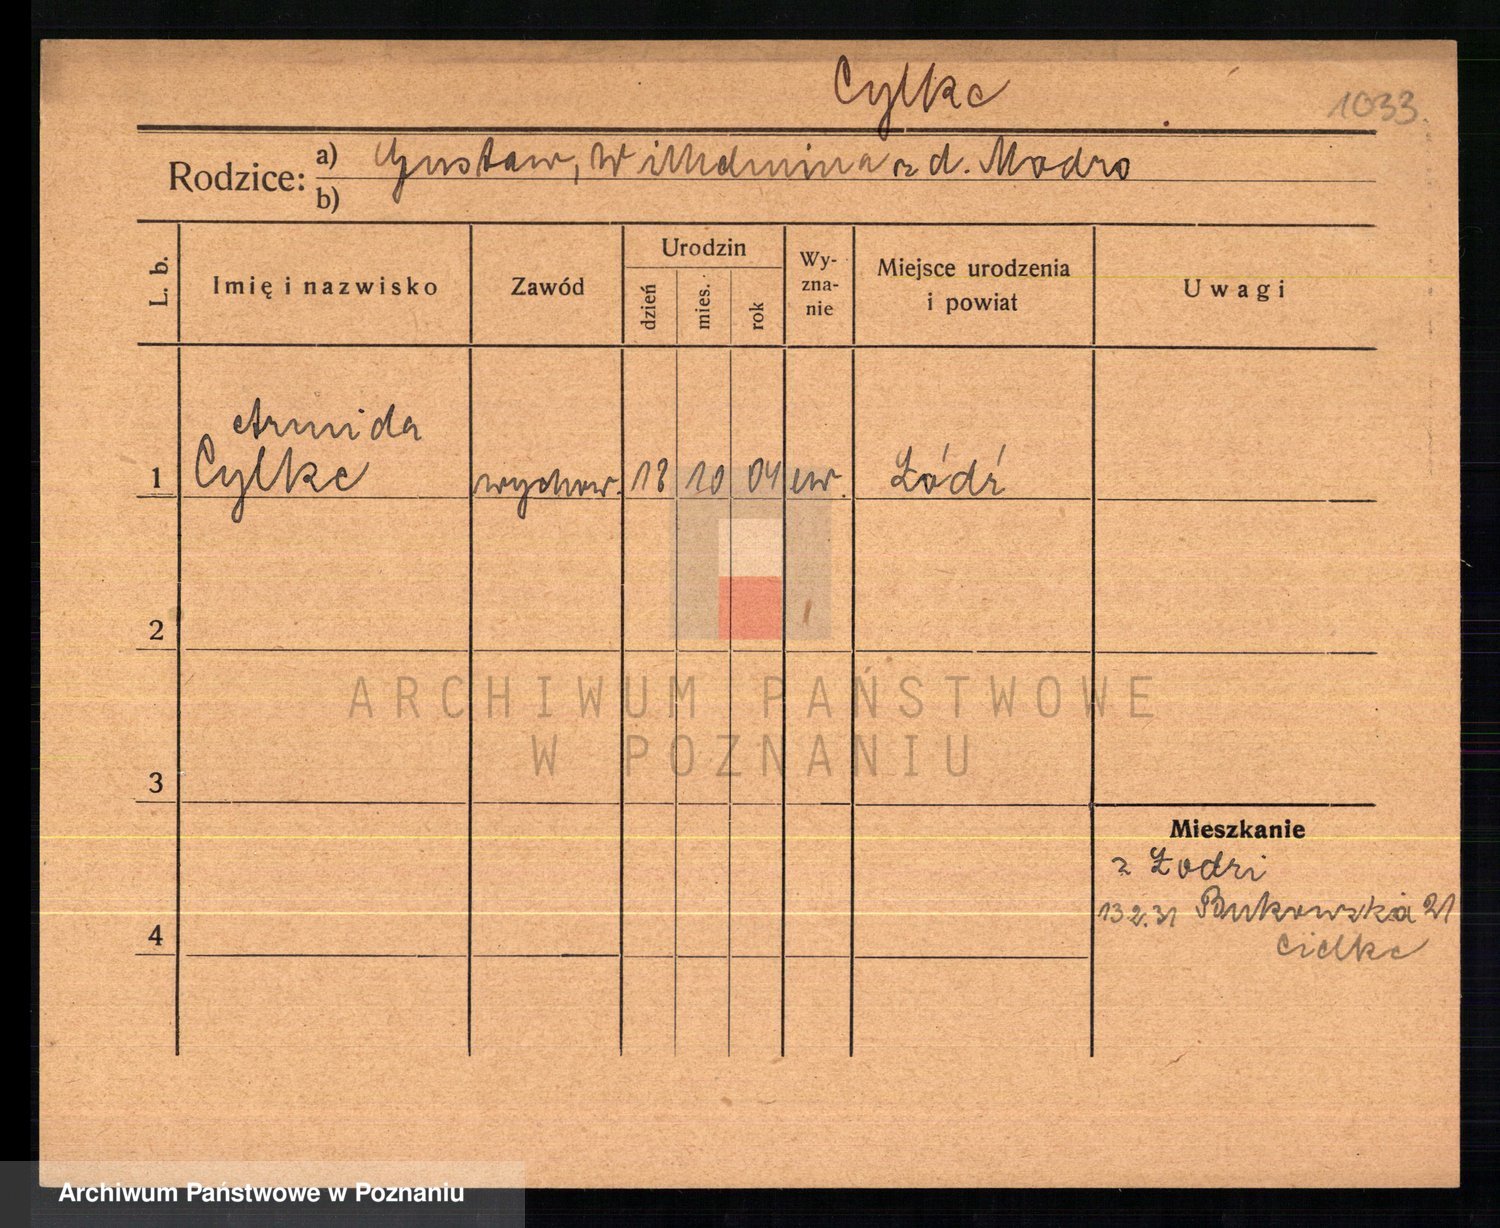 Cylke
1033.
Rodzice: a) Gustaw, Wilhelmina z d. Modro
b)
L. b.
Imię i nazwisko
Zawód
Urodzin
dzień
mies.
rok
Wy-
zna-
nie
Miejsce urodzenia
i powiat
Uwagi
Armida
1 Cylke wychow. 18 10 04 ew. Łódź
2
3
4
Mieszkanie
z Łodzi
13.2.31 Bukowska 21
Cielke
ARCHIWUM PAŃSTWOWE
W POZNANIU
Archiwum Państwowe w Poznaniu